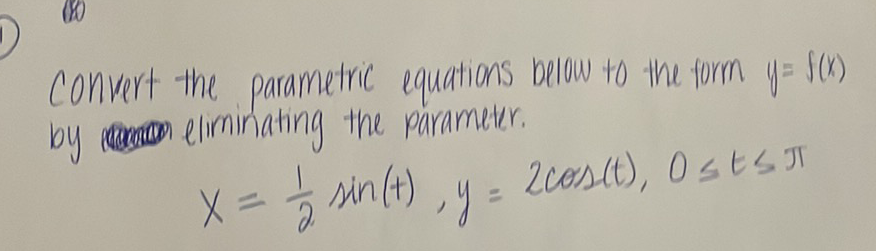 Convert the parametric equations below to the form y = f(x)
by eliminating the parameter.
x = 1/2 sin(t), y = 2cos(t), 0 ≤ t ≤ π